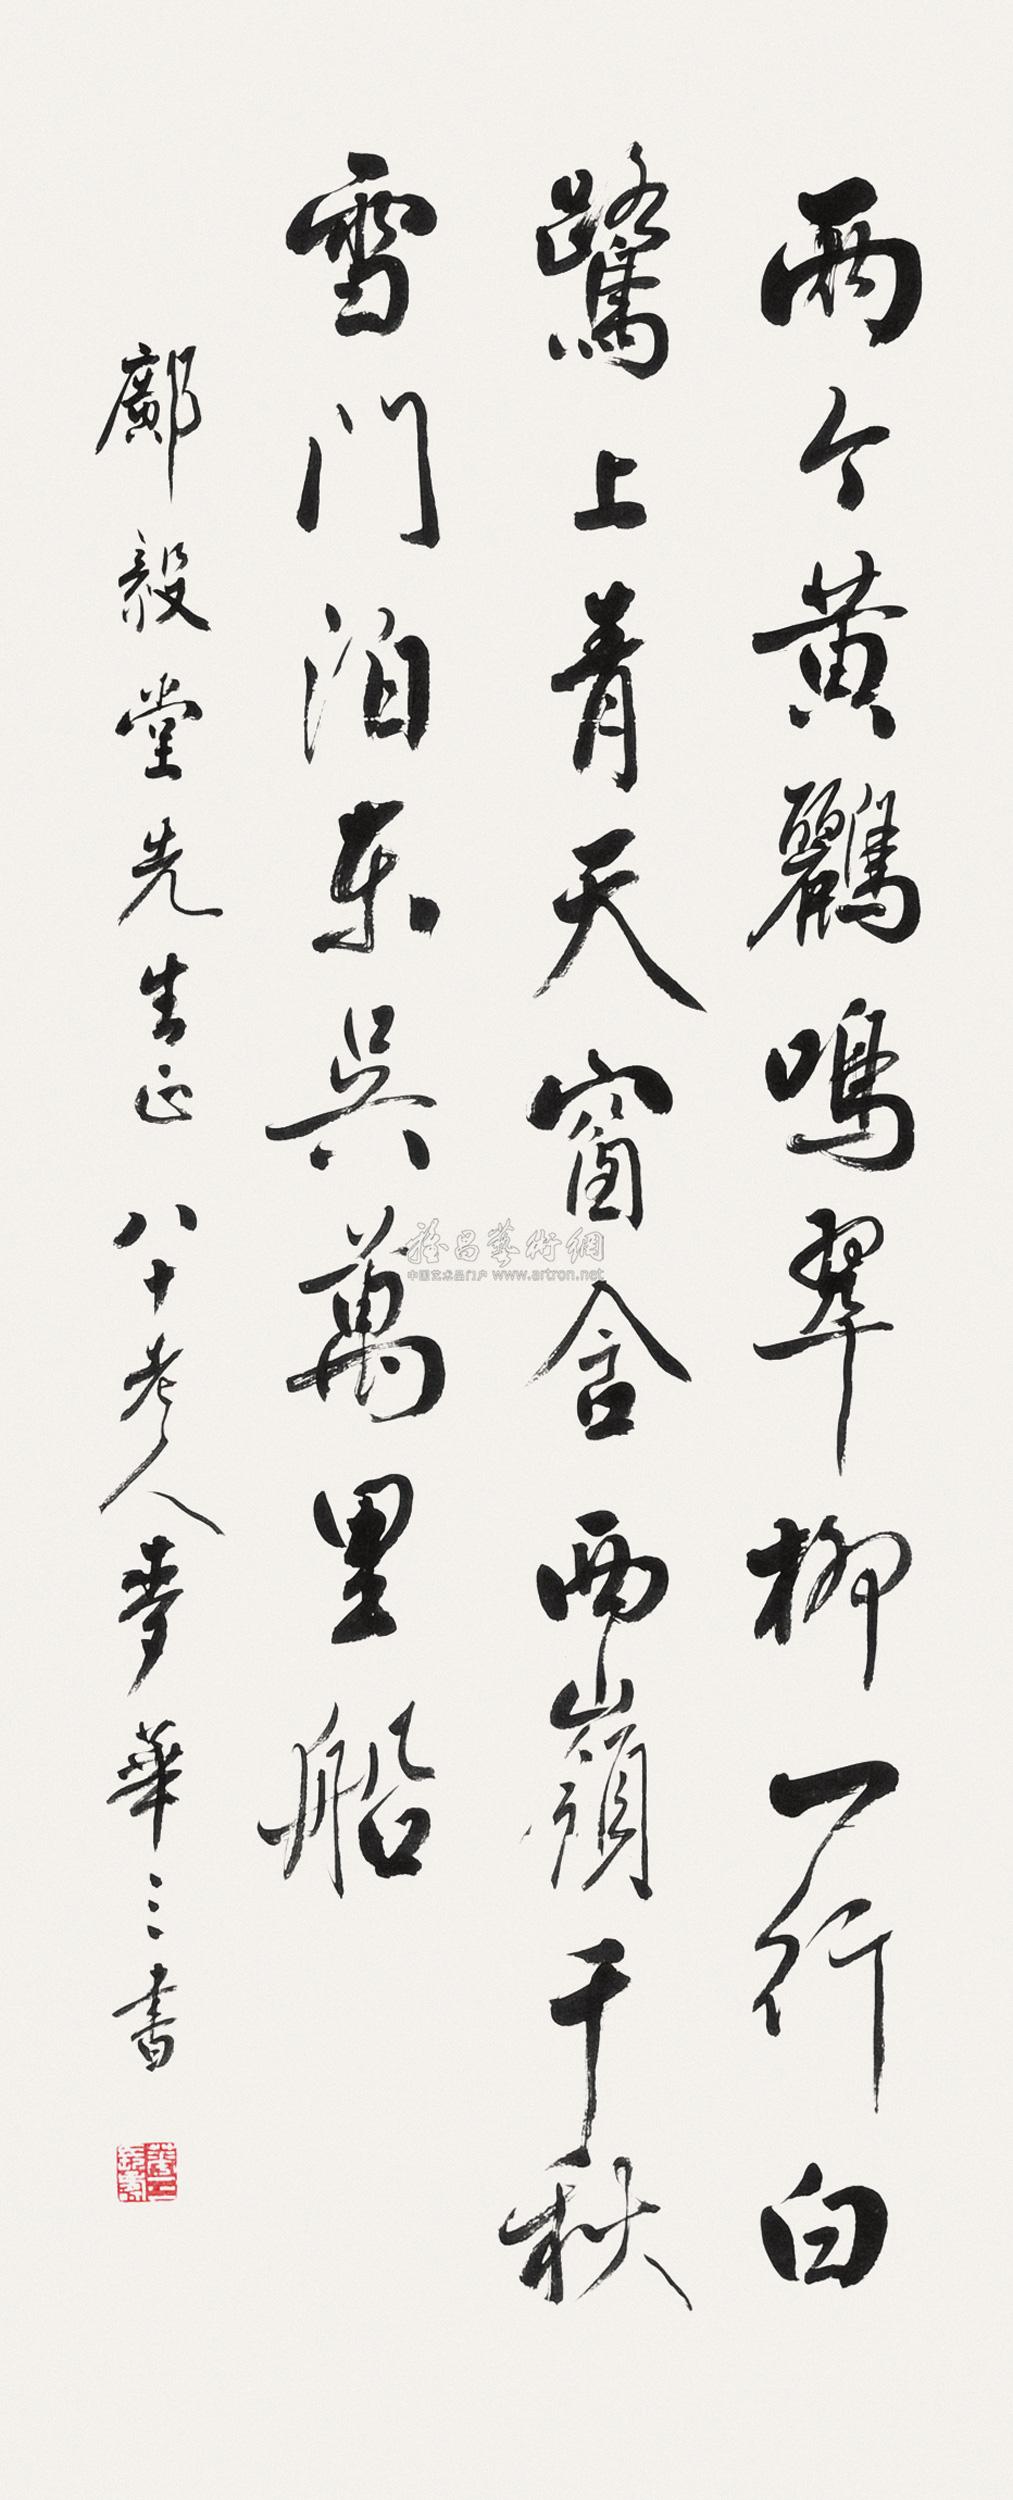 兩个黄鸝鳴翠柳一行白
鷺上青天窗含西嶺千秋
雪門泊東吳萬里船
鄺毅堂先生正 八十老人麥華三書
雅昌藝術網
中国艺术品门户 www.artron.net